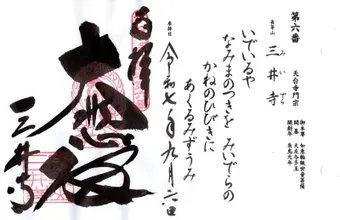 第六番
天台寺門宗
御本尊 如意輪観世音菩薩
開基 大友与多王
開創年 朱鳥元年
長等山
三井寺
みいでら
いでいるや
なみまのつきを みいでらの
かねのひびきに
あくるみずうみ
令和七年九月六日
奉拝
大悲殿
三井寺